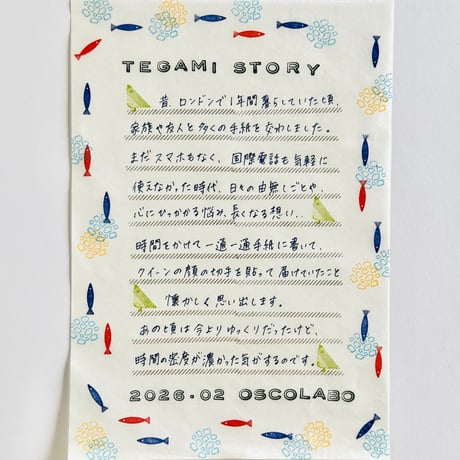 TEGAMI STORY
昔、ロンドンで1年間暮らしていた頃、
家族や友人と多くの手紙を交わしました。
まだスマホもなく、国際電話も気軽に
使えなかった時代、日々の由無しごとや、
心にひっかかる悩み、長くなる想い、、
時間をかけて一通一通手紙に書いて、
クイーンの顔の切手を貼って届けていたこと
懐かしく思い出します。
あの頃は今よりゆっくりだったけど、
時間の密度が濃かった気がするのです。
2026.02 OSCOLABO